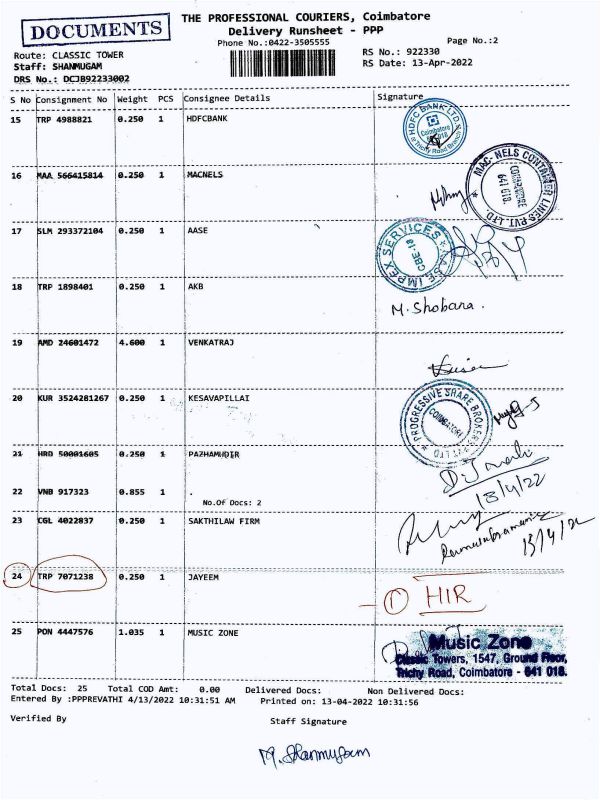 DOCUMENTS
THE PROFESSIONAL COURIERS, Coimbatore
Delivery Runsheet - PPP
Phone No.:0422-3505555
Page No.:2
Route: CLASSIC TOWER
RS No.: 922330
Staff: SHANMUGAM
RS Date: 13-Apr-2022
DRS No.: DCJB92233002
S No Consignment No Weight PCS Consignee Details Signature
15 TRP 4988821 0.250 1 HDFCBANK
HDFC BANK LTD. Coimbatore 018 Trichy Road Branch
16 MAA 566415814 0.250 1 MACNELS
MAC-NELS CONTAINER LINES PVT. LTD. COIMBATORE 641 018.
17 SLM 293372104 0.250 1 AASE
AASE IMPEX SERVICES CBE-18
18 TRP 1898401 0.250 1 AKB
M. Shobana.
19 AMD 24601472 4.600 1 VENKATRAJ
20 KUR 3524281267 0.250 1 KESAVAPILLAI
PROGRESSIVE SHARE BROKERS PVT LTD COIMBATORE
21 HRD 50001605 0.250 1 PAZHAMUDIR
13/4/22
22 VNB 917323 0.855 1 .
No.Of Docs: 2
23 CGL 4022837 0.250 1 SAKTHILAW FIRM
13/4/22
24 TRP 7071238 0.250 1 JAYEEM
1 HIR
25 PON 4447576 1.035 1 MUSIC ZONE
Music Zone
Classic Towers, 1547, Ground Floor,
Trichy Road, Coimbatore - 641 018.
Total Docs: 25 Total COD Amt: 0.00 Delivered Docs: Non Delivered Docs:
Entered By :PPPREVATHI 4/13/2022 10:31:51 AM Printed on: 13-04-2022 10:31:56
Verified By
Staff Signature
M. Shanmugam